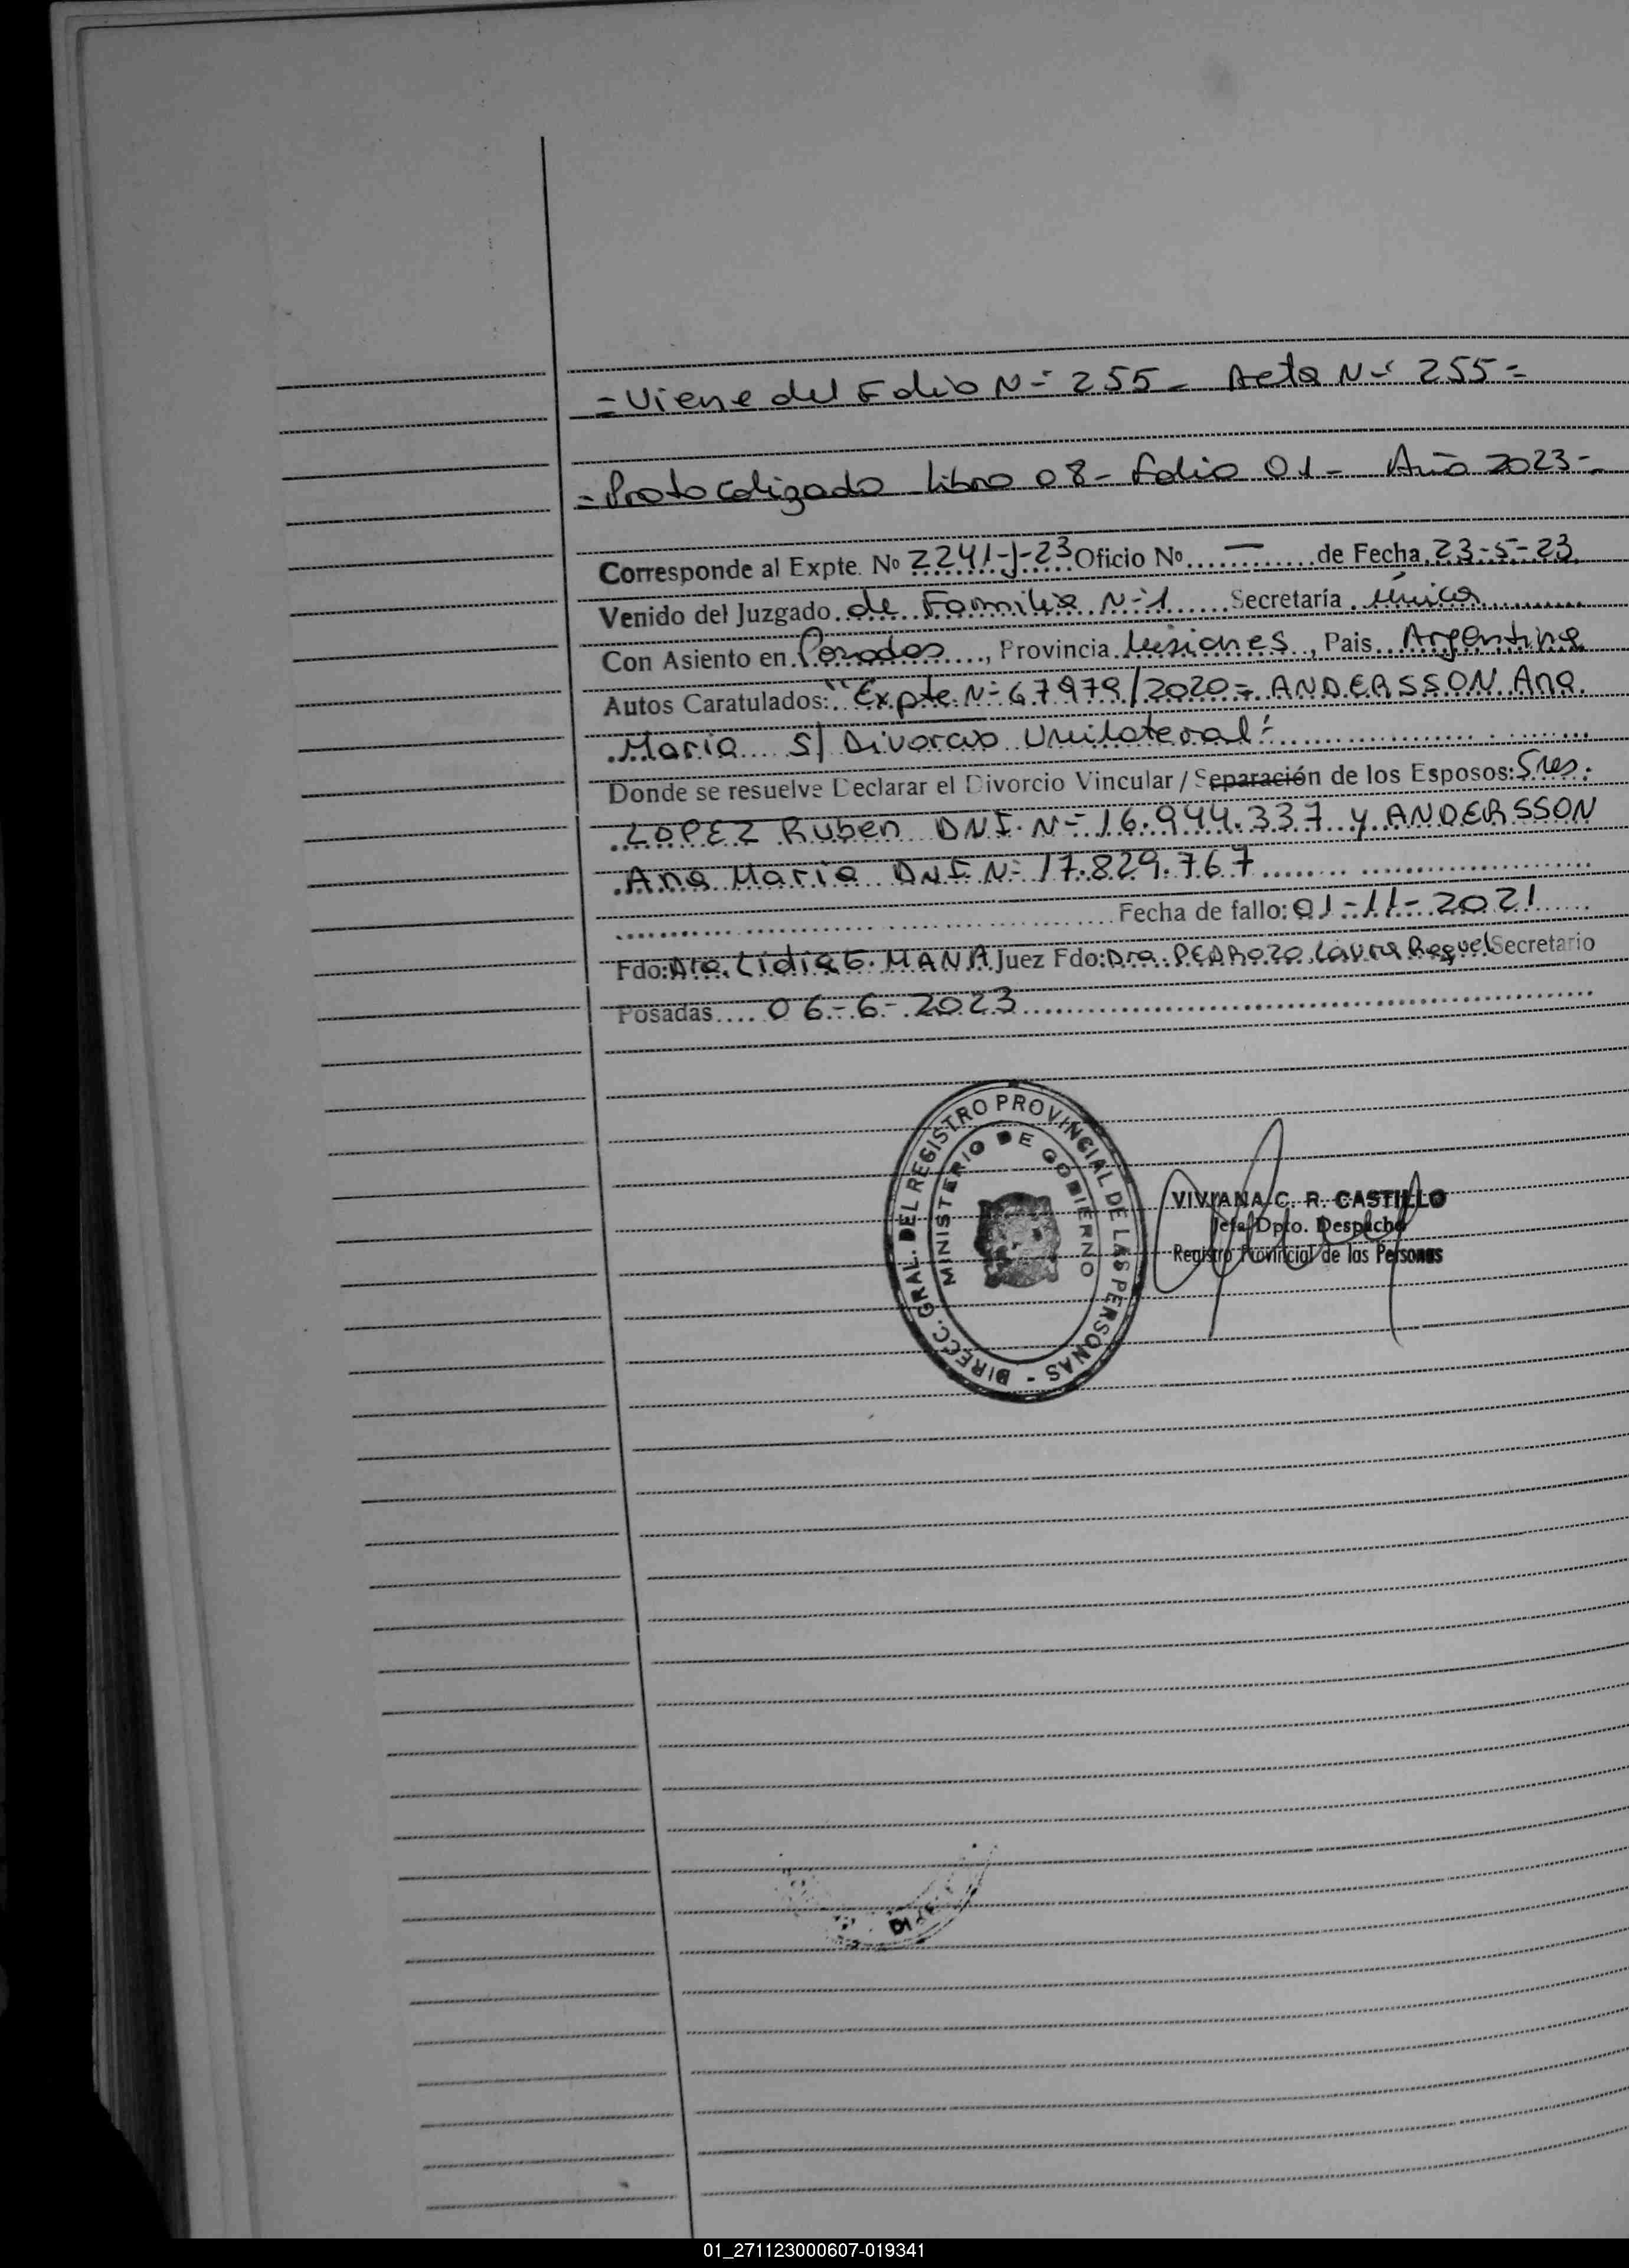 = Viene del Folio Nº 255 - Acta Nº 255 =
= Protocolizado Libro 08 - Folio 01 - Año 2023 =
Corresponde al Expte. Nº 2241-J-23 Oficio Nº ..... — ..... de Fecha 23-5-23
Venido del Juzgado de Familia Nº 1 ...... Secretaría única
Con Asiento en Posadas ...., Provincia Misiones, Pais Argentina
Autos Caratulados: "Expte Nº 67979/2020 = ANDERSSON Ana
Maria s/ Divorcio Unilateral"
Donde se resuelve Declarar el Divorcio Vincular / Separación de los Esposos: Sres.
LOPEZ Ruben DNI. Nº 16.944.337 y ANDERSSON
Ana Maria DNI Nº 17.829.767
Fecha de fallo: 01-11-2021
Fdo: Dra. Lidia G. MANA Juez Fdo: Dra. PEDROZO Laura Raquel Secretario
Posadas .... 06-6-2023
DIRECC. GRAL. DEL REGISTRO PROVINCIAL DE LAS PERSONAS -
MINISTERIO DE GOBIERNO
VIVIANA C. R. CASTILLO
Jefa Dpto. Despacho
Registro Provincial de las Personas
01_271123000607-019341